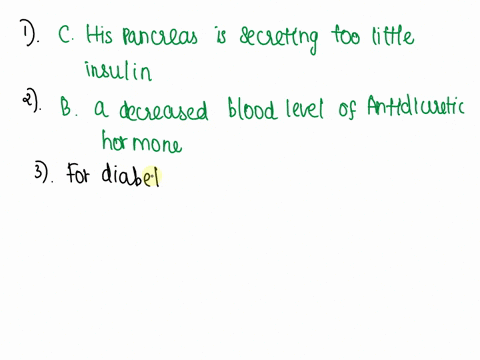 1). C. His pancreas is secreting too little
insulin
2). B. a decreased blood level of Antidiuretic
hormone
3). For diabet